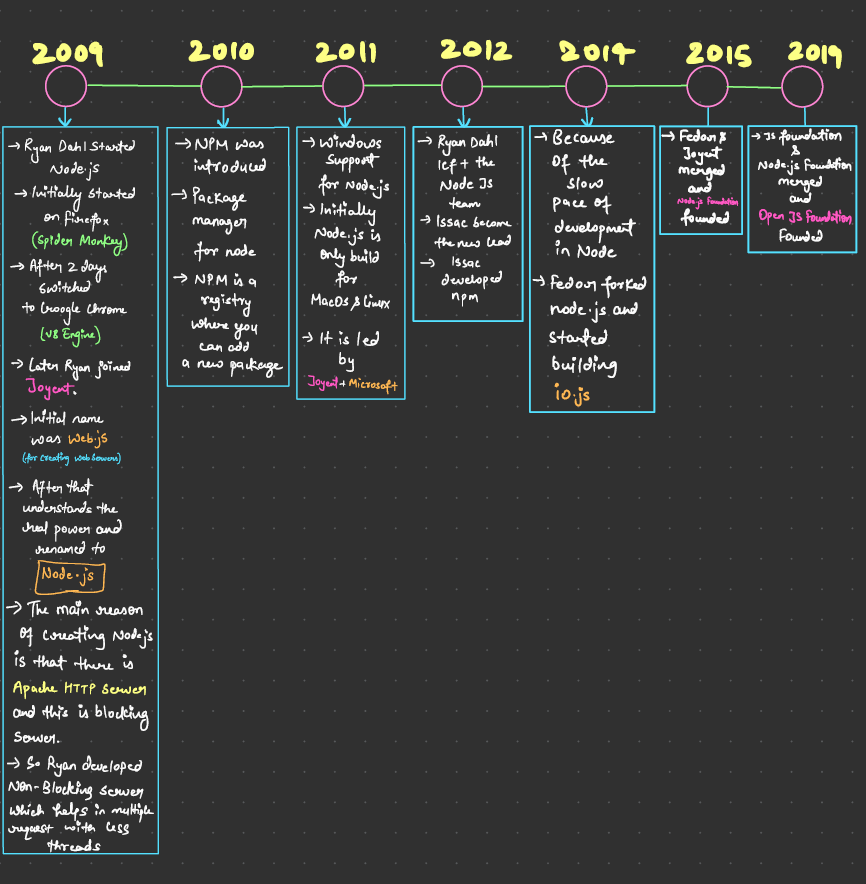 2009
→ Ryan Dahl Started
Node.js
→ Initially started
on firefox
(Spider Monkey)
→ After 2 days
switched
to Google Chrome
(V8 Engine)
→ Later Ryan joined
Joyent.
→ Initial name
was Web.js
(for creating Web Servers)
→ After that
understands the
real power and
renamed to
Node.js
→ The main reason
of creating Node.js
is that there is
Apache HTTP Server
and this is blocking
Server.
→ So Ryan developed
Non-Blocking server
which helps in multiple
request with less
threads
2010
→ NPM was
introduced
→ Package
manager
for node
→ NPM is a
registry
where you
can add
a new package
2011
→ Windows
Support
for Node.js
→ Initially
Node.js is
only build
for
MacOS & Linux
→ It is led
by
Joyent + Microsoft
2012
→ Ryan Dahl
left the
Node JS
team
→ Issac become
the new lead
→ Issac
developed
npm
2014
→ Because
Of the
slow
pace of
development
in Node
→ Fedour forked
node.js and
started
building
io.js
2015
→ Fedour &
Joyent
merged
and
Node.js Foundation
founded
2019
→ JS foundation
&
Node.js Foundation
merged
and
Open JS Foundation
Founded